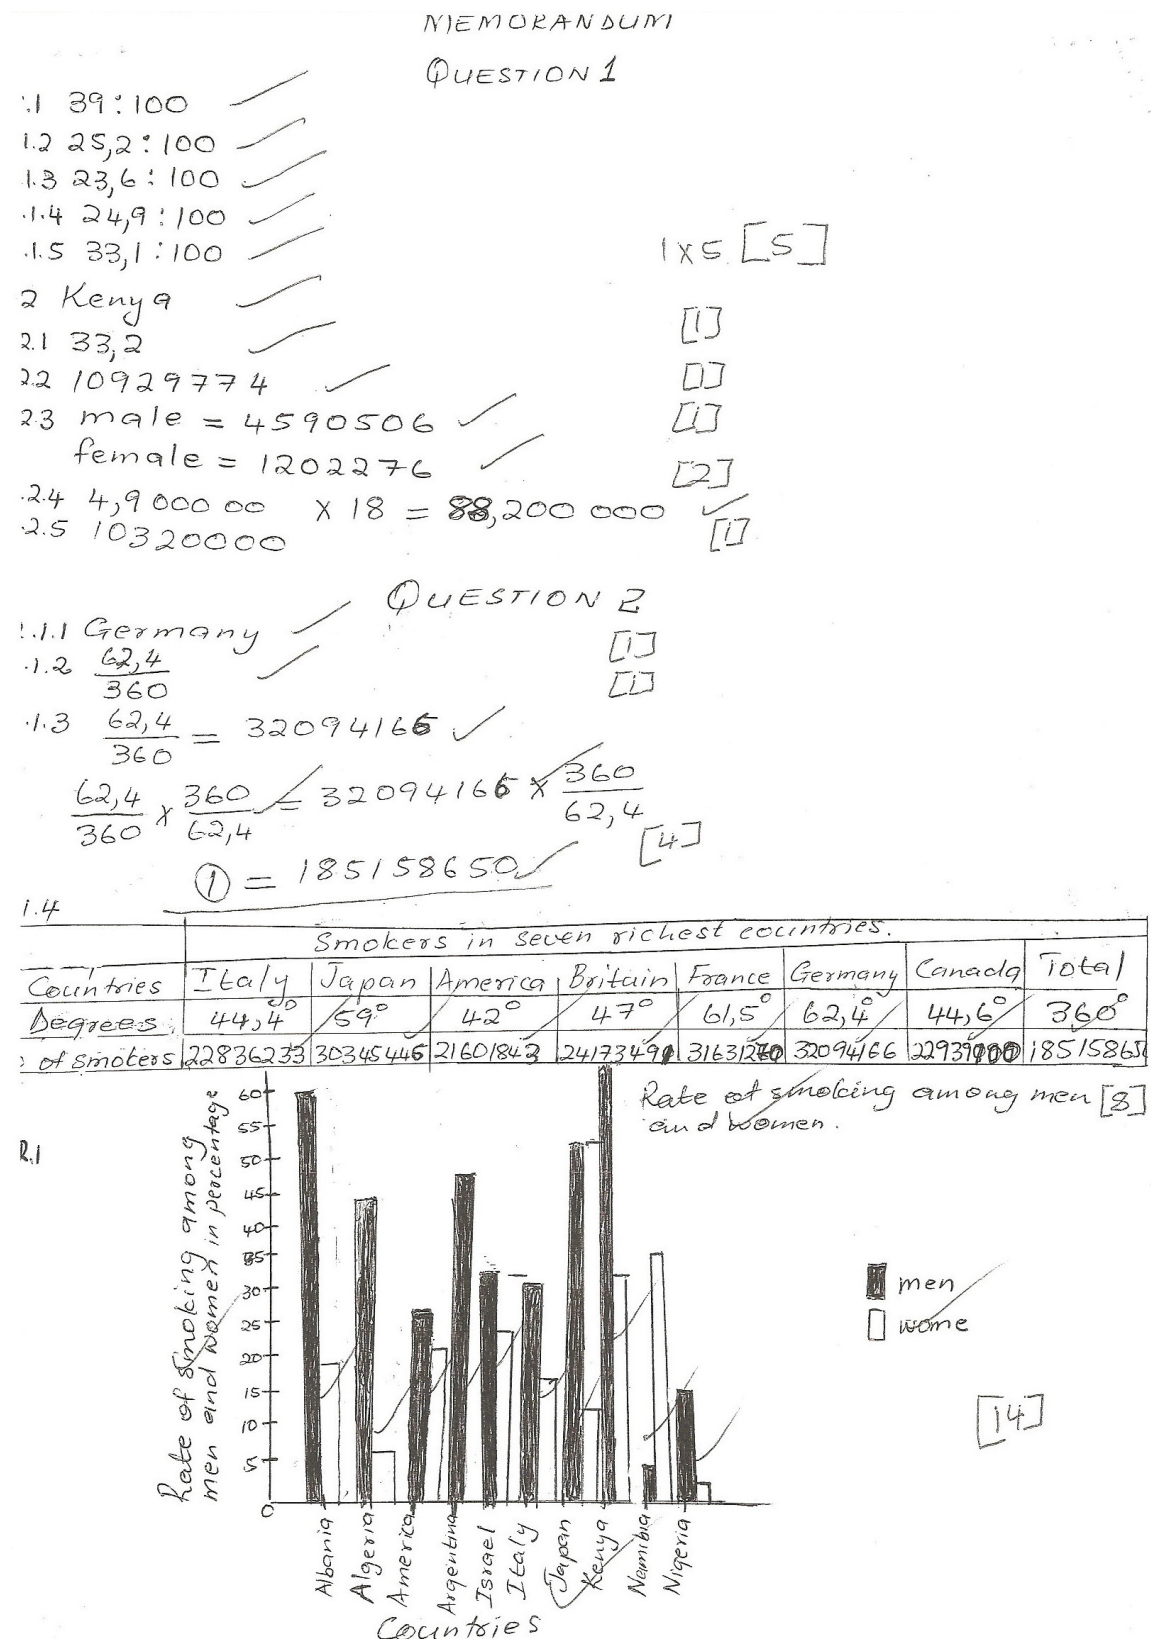 MEMORANDUM
QUESTION 1
.1 39:100
1.2 25,2:100
1.3 23,6:100
.1.4 24,9:100
.1.5 33,1:100
1x5 [5]
2 Kenya
[1]
2.1 33,2
2.2 10929774
[1]
2.3 male = 4590506
[1]
female = 1202276
[2]
.2.4 4,9000 00 x 18 = 88,200 000
.2.5 10320000
[1]
QUESTION 2
.1.1 Germany
[1]
.1.2 62,4/360
[1]
.1.3 62,4/360 = 32094166
62,4/360 x 360/62,4 = 32094166 x 360/62,4
[4]
1 = 185158650
1.4
Smokers in seven richest countries.
Countries Italy Japan America Britain France Germany Canada Total
Degrees 44,4° 59° 42° 47° 61,5° 62,4° 44,6° 360°
of smokers 22836233 30345445 21601843 32094166
Rate of smoking among men [8]
and women.
2.1
Rate of smoking among
men and women in percentage
60
55
50
45
40
35
30
25
20
15
10
5
0
men
wome
[14]
Albania
Algeria
America
Argentina
Israel
Italy
Japan
Kenya
Namibia
Nigeria
Countries